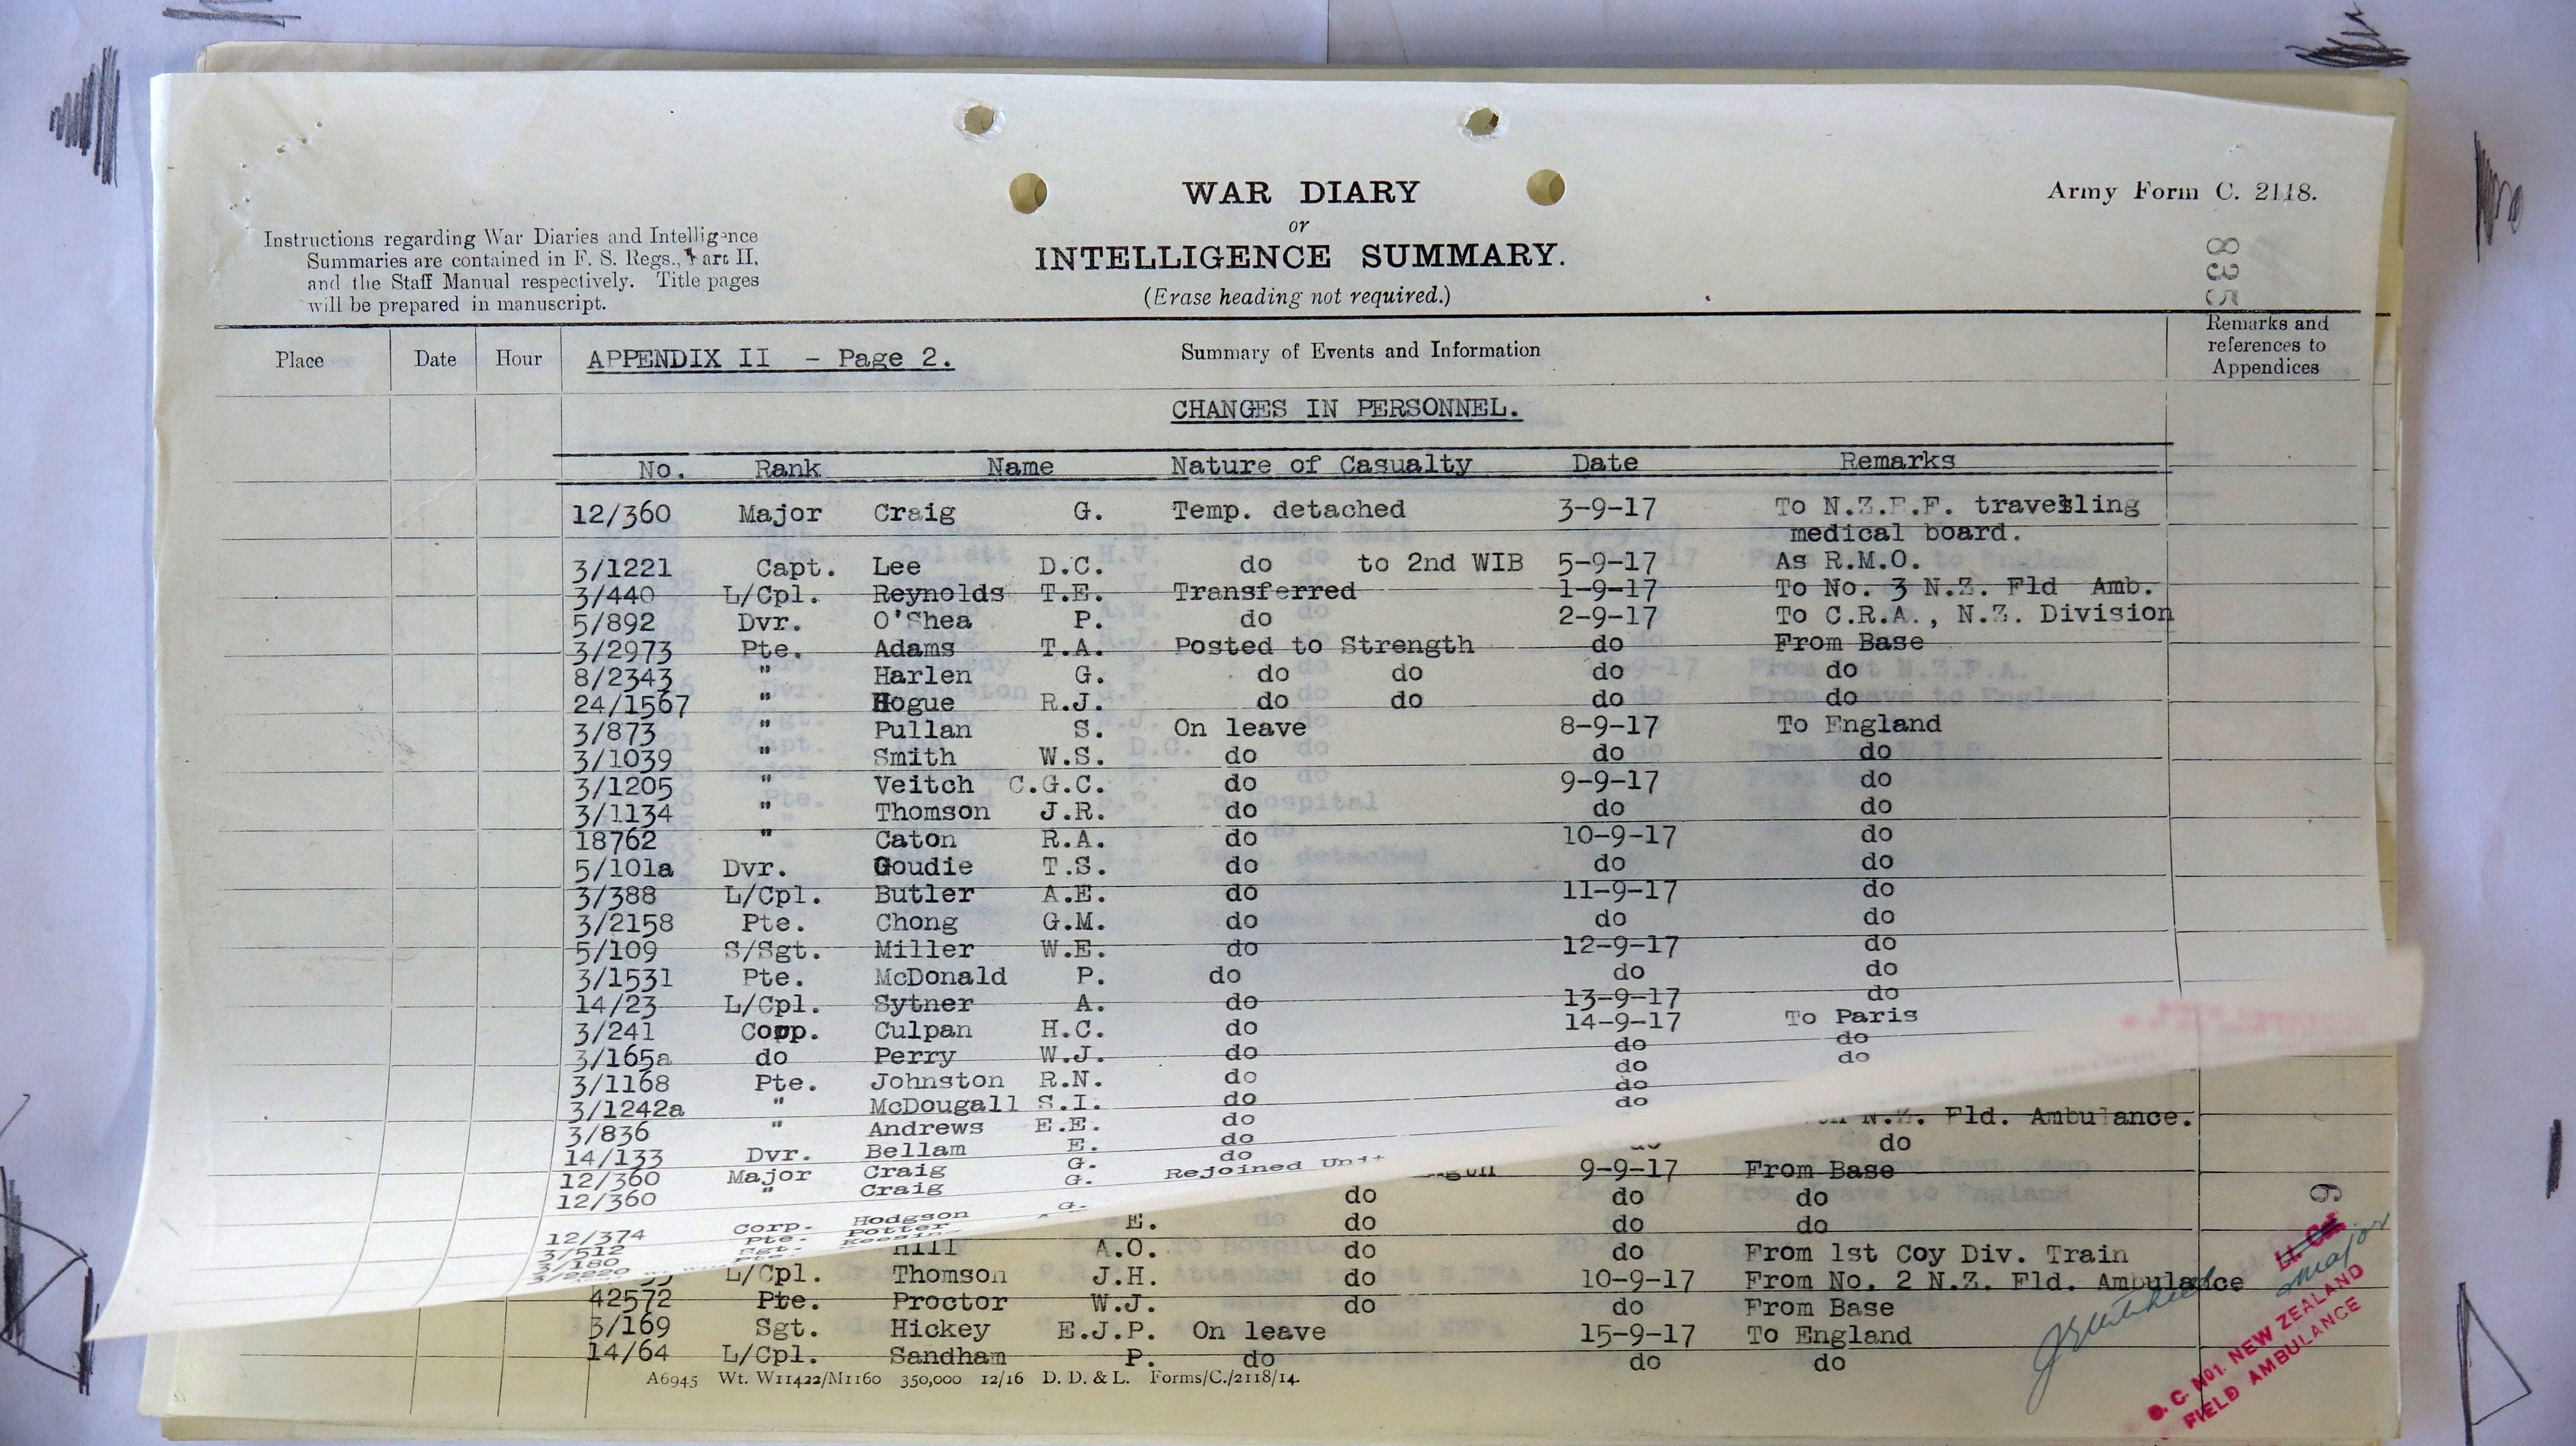 WAR DIARY
or
INTELLIGENCE SUMMARY.
(Erase heading not required.)
Army Form C. 2118.
835
Instructions regarding War Diaries and Intelligence
Summaries are contained in F. S. Regs., Part II,
and the Staff Manual respectively. Title pages
will be prepared in manuscript.
Place Date Hour APPENDIX II - Page 2. Summary of Events and Information Remarks and references to Appendices
CHANGES IN PERSONNEL.
No. Rank Name Nature of Casualty Date Remarks
12/360 Major Craig G. Temp. detached 3-9-17 To N.Z.E.F. travelling
medical board.
3/1221 Capt. Lee D.C. do to 2nd WIB 5-9-17 As R.M.O.
3/440 L/Cpl. Reynolds T.E. Transferred 1-9-17 To No. 3 N.Z. Fld Amb.
5/892 Dvr. O'Shea P. do 2-9-17 To C.R.A., N.Z. Division
3/2973 Pte. Adams T.A. Posted to Strength do From Base
8/2343 " Harlen G. do do do do
24/1567 " Hogue R.J. do do do do
3/873 " Pullan S. On leave 8-9-17 To England
3/1039 " Smith W.S. do do do
3/1205 " Veitch C.G.C. do 9-9-17 do
3/1134 " Thomson J.R. do do do
18762 " Caton R.A. do 10-9-17 do
5/101a Dvr. Goudie T.S. do do do
3/388 L/Cpl. Butler A.E. do 11-9-17 do
3/2158 Pte. Chong G.M. do do do
5/109 S/Sgt. Miller W.E. do 12-9-17 do
3/1531 Pte. McDonald P. do do do
14/23 L/Cpl. Sytner A. do 13-9-17 do
3/241 Corp. Culpan H.C. do 14-9-17 To Paris
3/165a do Perry W.J. do do do
3/1168 Pte. Johnston R.N. do do do
3/1242a " McDougall S.I. do do
3/836 " Andrews E.E. do do
14/133 Dvr. Bellam E. do
12/360 Major Craig G. do
12/360 " Craig G. Rejoined Unit
12/374 Corp. Hodgson G.
3/512 Pte. Potter
3/180 Sgt.
3/2220 Pte.
N.Z. Fld. Ambulance.
do
9-9-17 From Base
do do do
E. do do do
Hill A.O. do do From 1st Coy Div. Train
L/Cpl. Thomson J.H. do 10-9-17 From No. 2 N.Z. Fld. Ambulance
42572 Pte. Proctor W.J. do do From Base
3/169 Sgt. Hickey E.J.P. On leave 15-9-17 To England
14/64 L/Cpl. Sandham P. do do do
A6945 Wt. W11422/M1160 350,000 12/16 D. D. & L. Forms/C./2118/14.
6
Major
O. C. No1. NEW ZEALAND
FIELD AMBULANCE